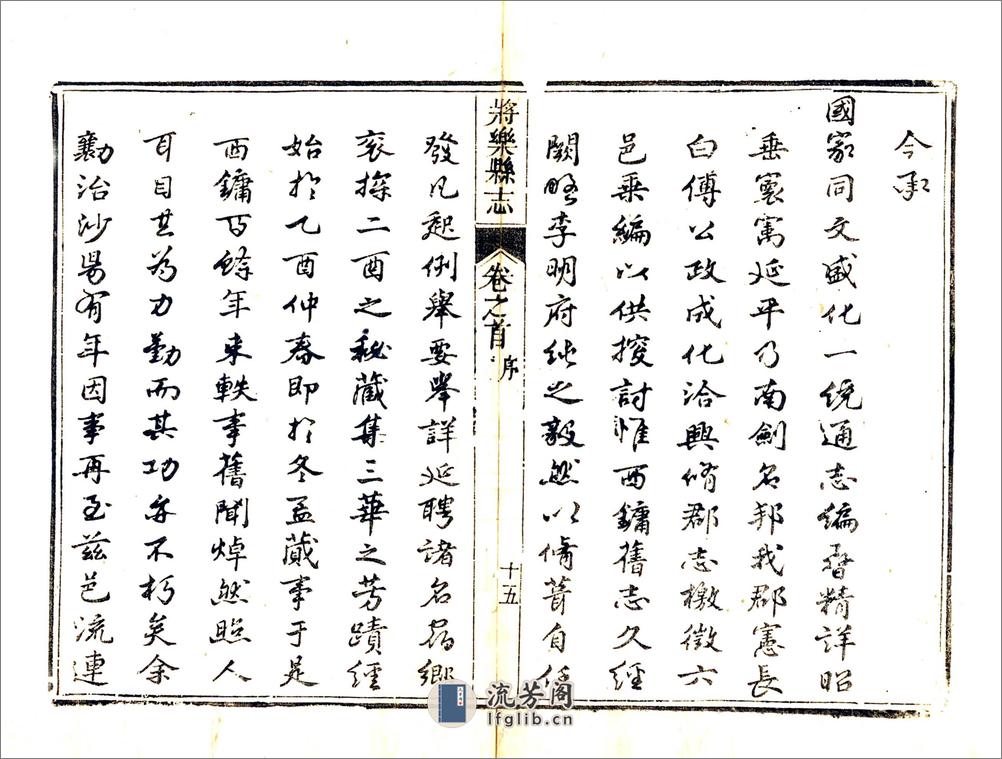 今承
國家同文盛化一統通志編摩精詳昭
垂寰寓延平乃南劍名邦我郡憲長
白傅公政成化洽興脩郡志檄徵六
邑乘編以供搜討惟西鏞舊志久經
闕略李明府純之毅然以脩葺自任
將樂縣志
卷之首
序
十五
發凡起例舉要舉詳延聘諸名碩鄉
衮探二酉之秘藏集三華之芳蹟經
始於乙酉仲春即於冬孟蕆事于是
西鏞百餘年來軼事舊聞焯然照人
耳目其為力勤而其功亦不朽矣余
勷治沙陽有年因事再至茲邑流連
流芳阁
lfglib.cn